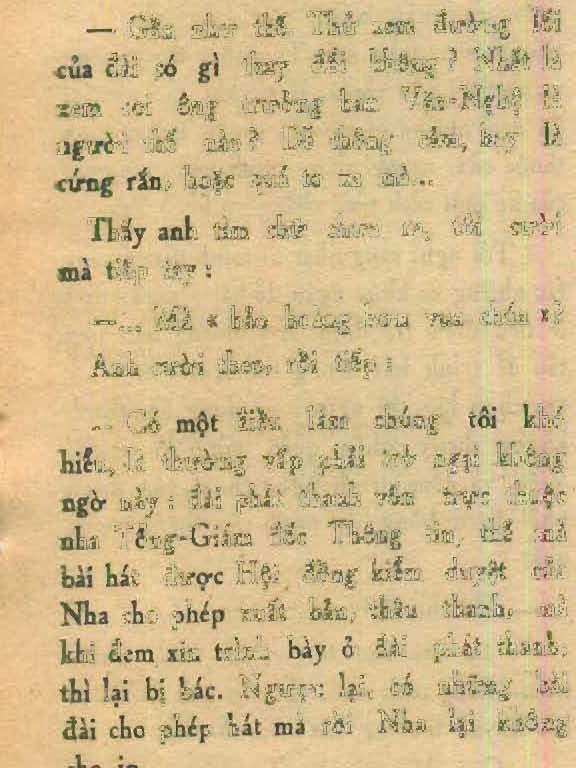 — Gần như thế Thử xem đường lối
của đài có gì thay đổi không? Nhất là
xem coi ông trưởng ban Văn-Nghệ là
người thế nào? Dễ thông cảm, hay là
cứng rắn, hoặc quá to ra mà...
Thấy anh tìm chữ chưa ra, tôi cười
mà tiếp tay :
—... Mà « bảo hoàng hơn vua chúa »?
Anh cười theo, rồi tiếp :
— Có một điều làm chúng tôi khó
hiểu, là thường vấp phải trở ngại không
ngờ này : đài phát thanh vốn trực thuộc
nha Tổng-Giám đốc Thông tin, thế mà
bài hát được Hội đồng kiểm duyệt của
Nha cho phép xuất bản, thâu thanh, mà
khi đem xin trình bày ở đài phát thanh,
thì lại bị bác. Ngược lại, có những bài
đài cho phép hát mà rồi Nha lại không
cho in